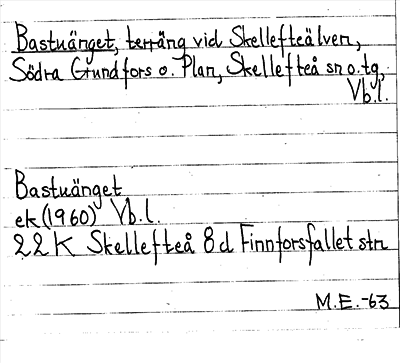 Bastuänget, terräng vid Skellefteälven,
Södra Grundfors o. Plan, Skellefteå sn o. tg,
Vb.l.
Bastuänget
ek (1960) Vb.l.
22 K Skellefteå 8d Finnforsfallet str.
M.E.-63